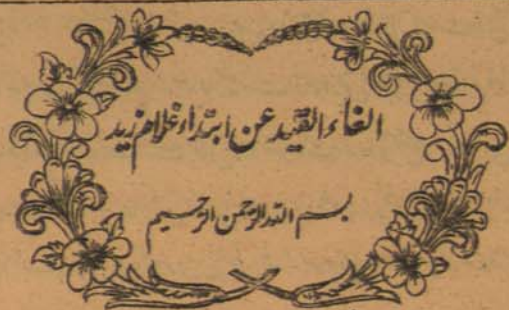 الغاء القید عن ابتداء غلام زید
بسم اللہ الرحمن الرحیم